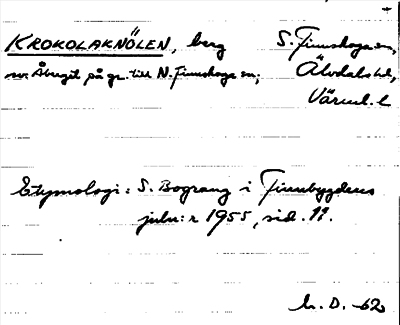 KROKOLAKNÖLEN, berg S. Finnskoga sn,
sv. Åbergst på gr. till N. Finnskoga sn; Älvdals hd,
Värml. l
Etymologi: S. Bograng i Finnbygdens
julnr 1955, sid. 11.
L. D. -62